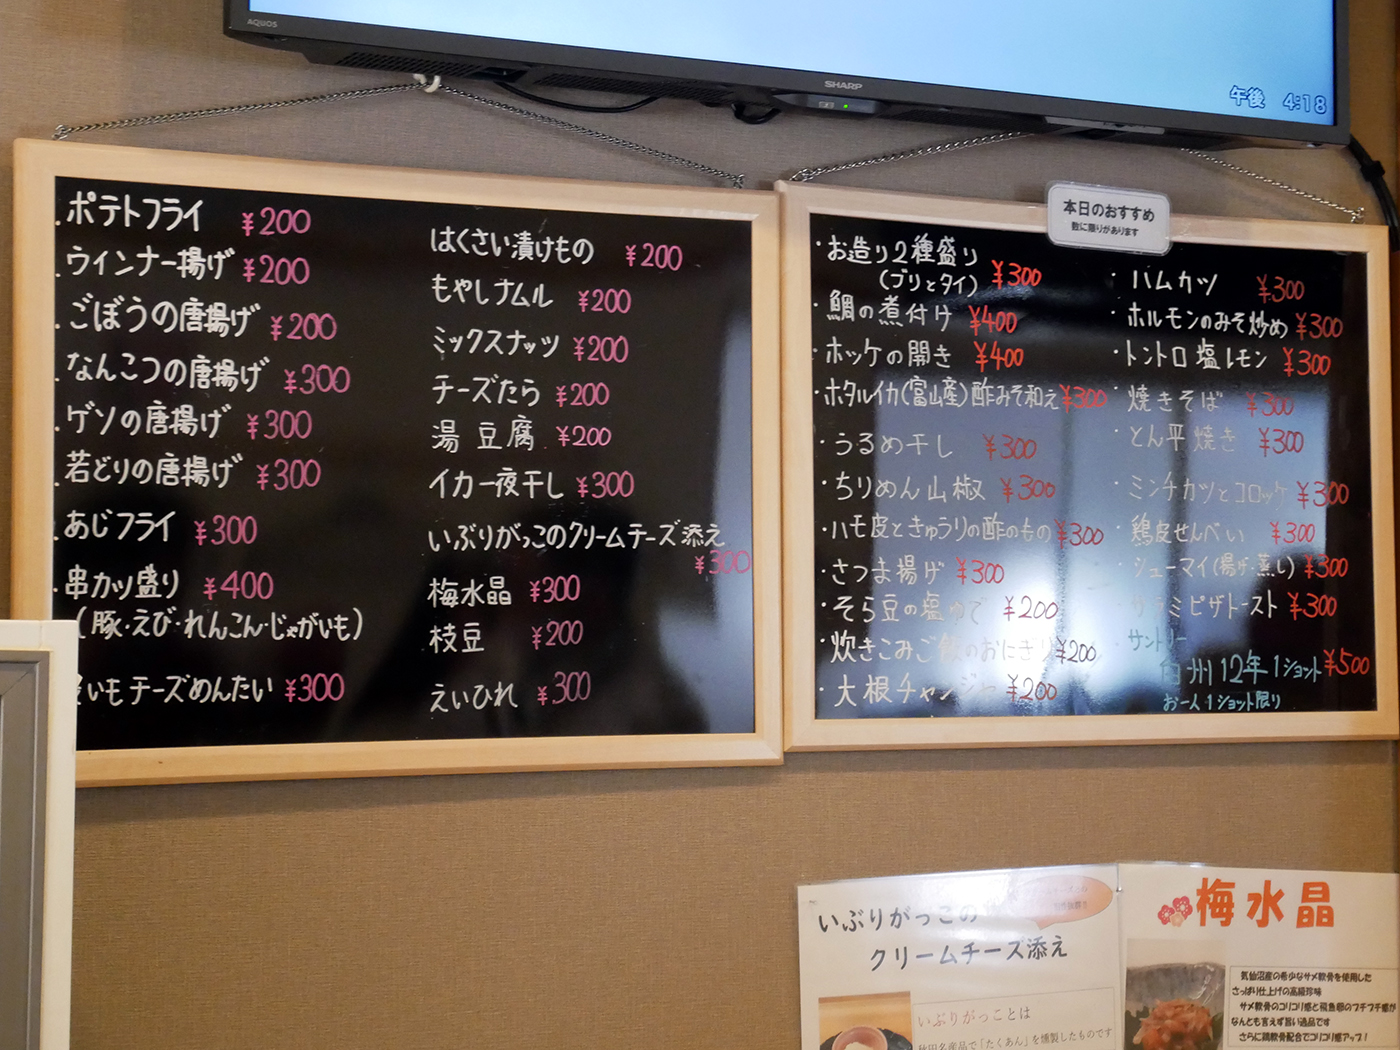 AQUOS
SHARP
午後 4:18
・ポテトフライ ¥200
・ウインナー揚げ ¥200
・ごぼうの唐揚げ ¥200
・なんこつの唐揚げ ¥300
・ゲソの唐揚げ ¥300
・若どりの唐揚げ ¥300
・あじフライ ¥300
・串カツ盛り ¥400
(豚・えび・れんこん・じゃがいも)
いもチーズめんたい ¥300
はくさい漬けもの ¥200
もやしナムル ¥200
ミックスナッツ ¥200
チーズたら ¥200
湯豆腐 ¥200
イカ一夜干し ¥300
いぶりがっこのクリームチーズ添え
¥300
梅水晶 ¥300
枝豆 ¥200
えいひれ ¥300
本日のおすすめ
数に限りがあります
・お造り2種盛り
(ブリとタイ) ¥300
・鯛の煮付け ¥400
・ホッケの開き ¥400
・ホタルイカ(富山産)酢みそ和え ¥300
・うるめ干し ¥300
・ちりめん山椒 ¥300
・ハモ皮ときゅうりの酢のもの ¥300
・さつま揚げ ¥300
・そら豆の塩ゆで ¥200
・炊きこみご飯のおにぎり ¥200
・大根チャンジャ ¥200
・ハムカツ ¥300
・ホルモンのみそ炒め ¥300
・トントロ塩レモン ¥300
・焼きそば ¥300
・とん平焼き ¥300
・ミンチカツとコロッケ ¥300
・鶏皮せんべい ¥300
・シューマイ(揚げ・蒸し) ¥300
・サラミピザトースト ¥300
サントリー
白州12年1ショット ¥500
お一人1ショット限り
いぶりがっこの
クリームチーズ添え
いぶりがっことは
秋田名産品で「たくあん」を燻製したものです
梅水晶
気仙沼産の希少なサメ軟骨を使用した
さっぱり仕上げの高級珍味
サメ軟骨のコリコリ感と飛魚卵のプチプチ感が
なんとも言えず旨い逸品です
さらに鶏軟骨配合でコリコリ感アップ!